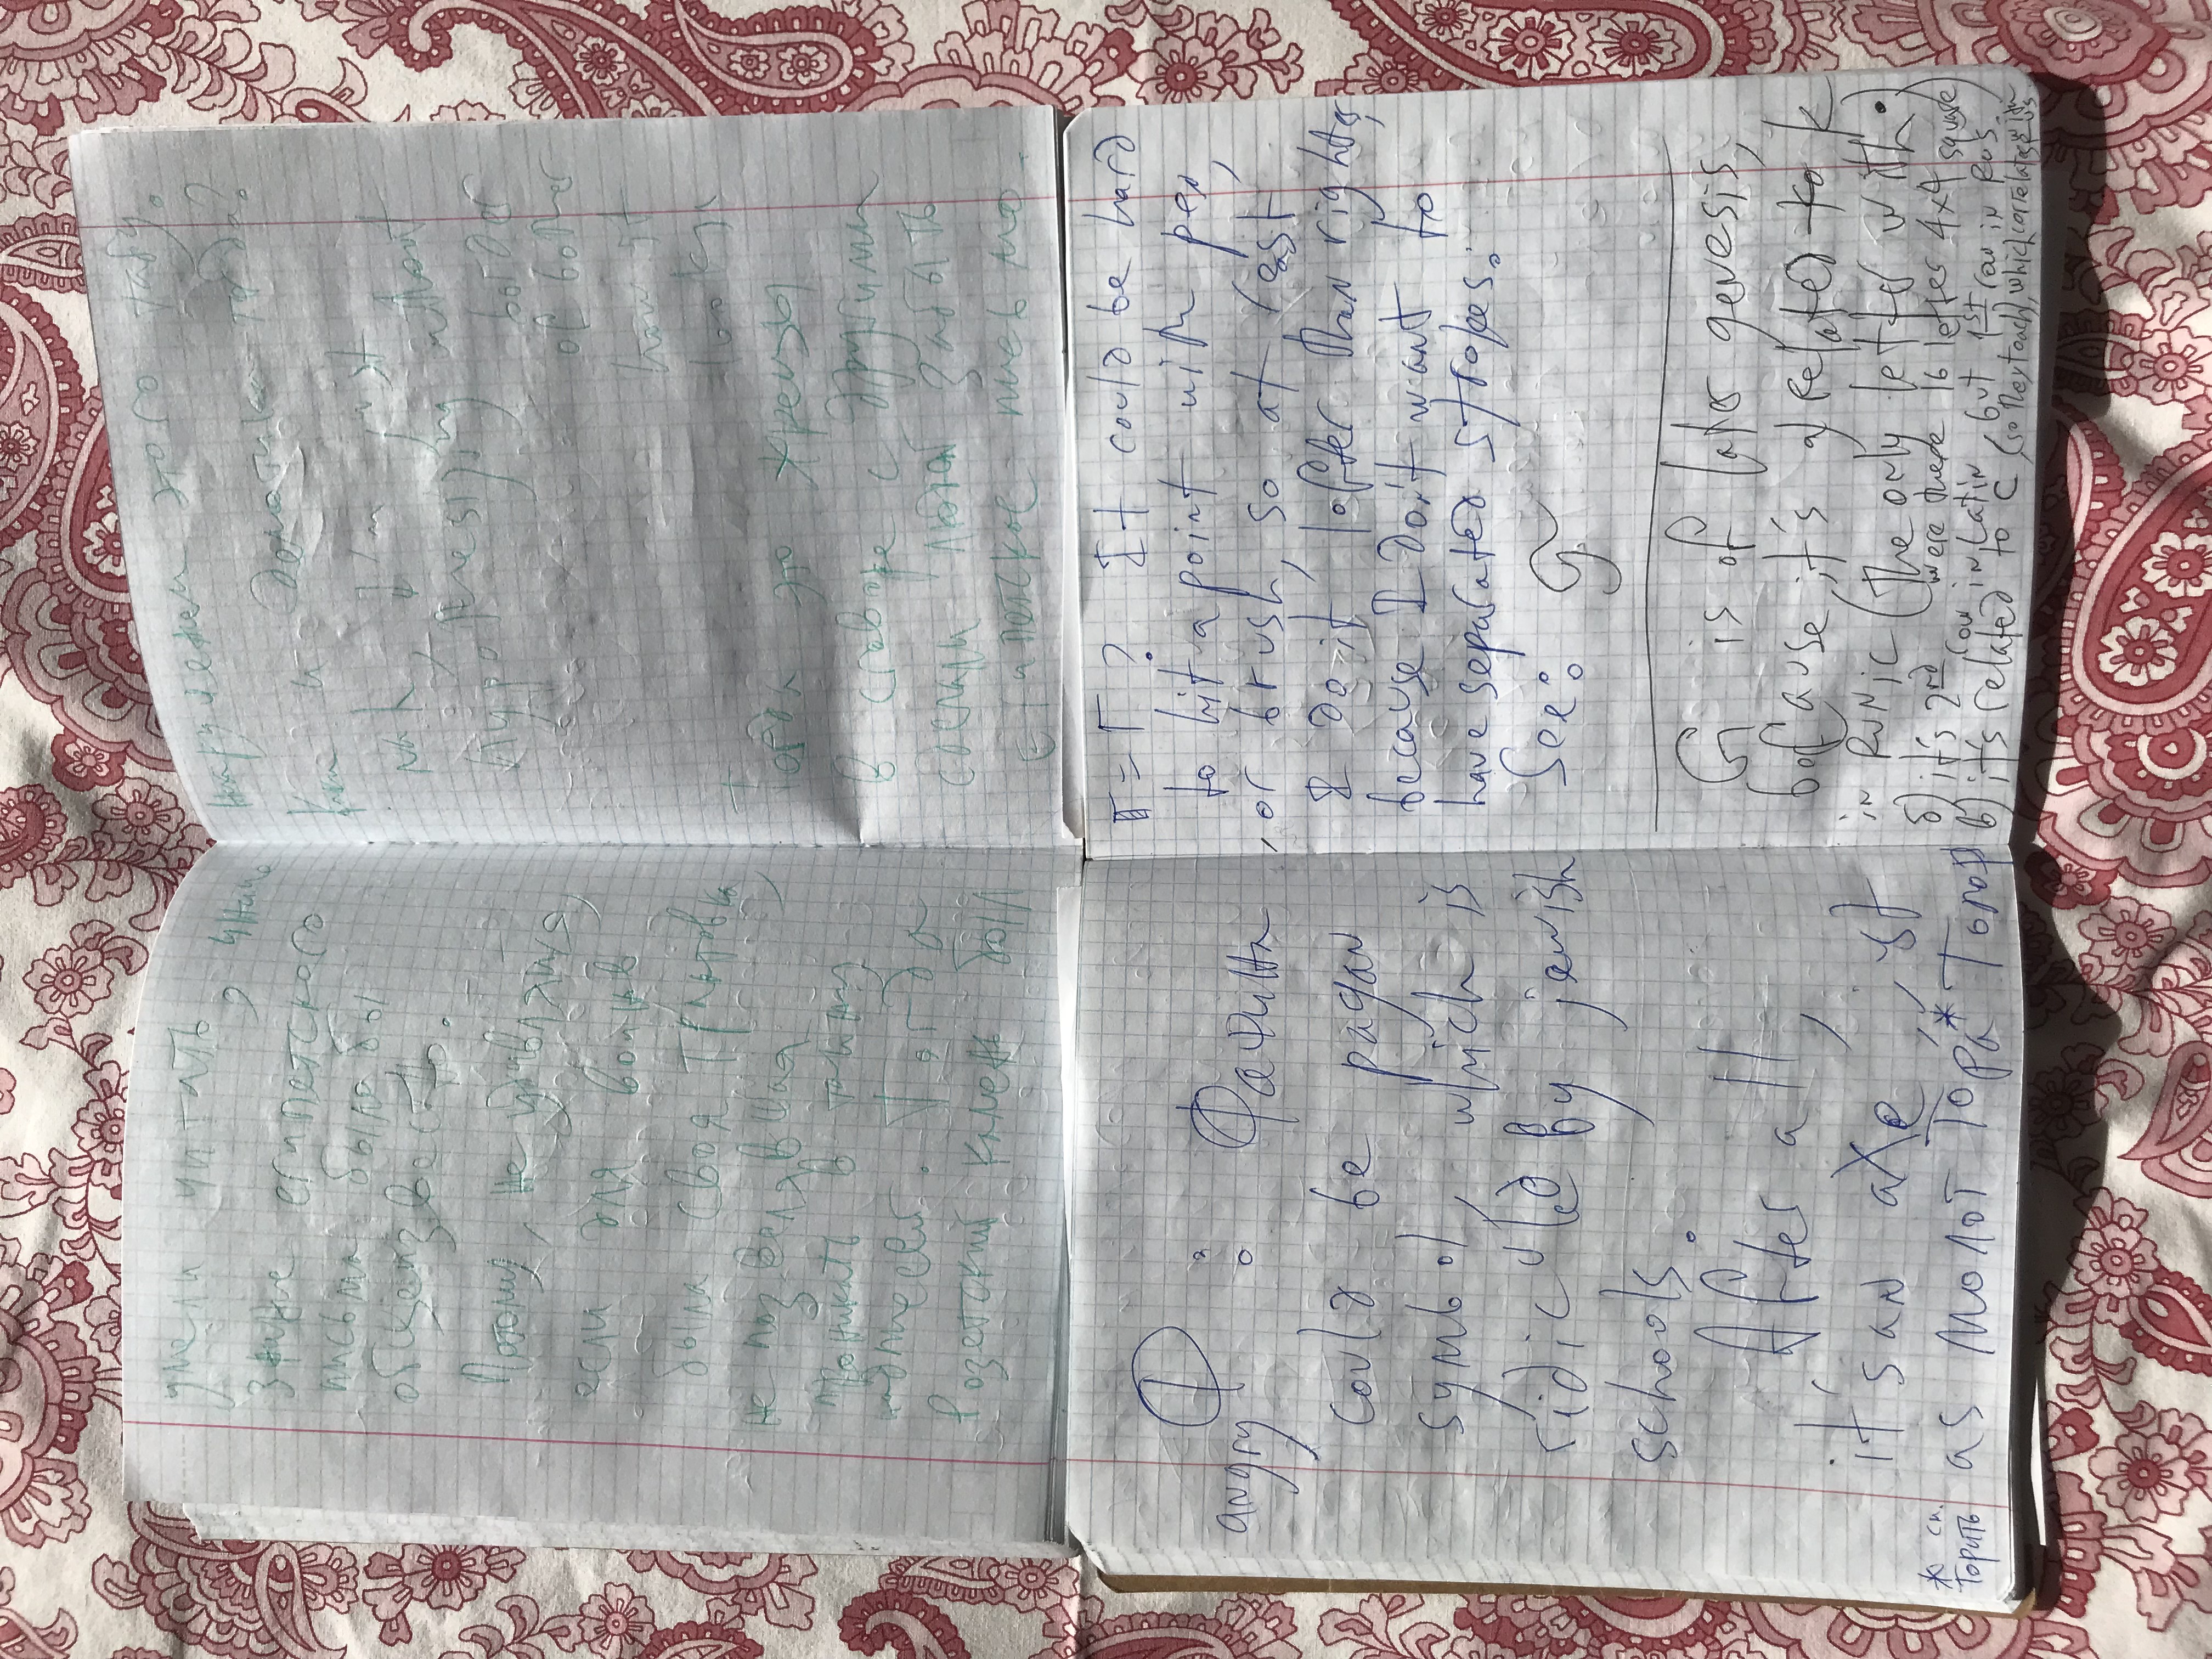 умели читать, иначе
знание египетского
письма была бы
общеизвестно.
Потому, не удивляйтся,
если для воинов
была своя трактовка,
не позволявшая
проникать в тайны
надписей. Тогда
Розетский камень был
нарушением этого табу.
Как и демотика тогда?
Nah, I'm just
Hypothesizing without
border
of bother
how it
looks.
Тогда это жрецы
в сговоре с другими
сделали людей забыть
Египетское письмо.
Ф
angry : Фафитна
could be pagan
symbol, which is
ridiculed by jewish
schools.
After all,
it's an axe, just
as молот Тора* Топор
* сп.
торить
Г = Г ? It could be hard
to hit a point with pen,
or brush, so at rest
I do it lefter than righter,
because I don't want to
have separated strokes:
See: g
G is of later genesis,
because it's related to k
in Runic (the only letter with •)
б) it's 2nd row in Latin, but 1st row in Rus.
were there 16 letter 4x4 square
в) it's related to C (so they teach), which correlates with